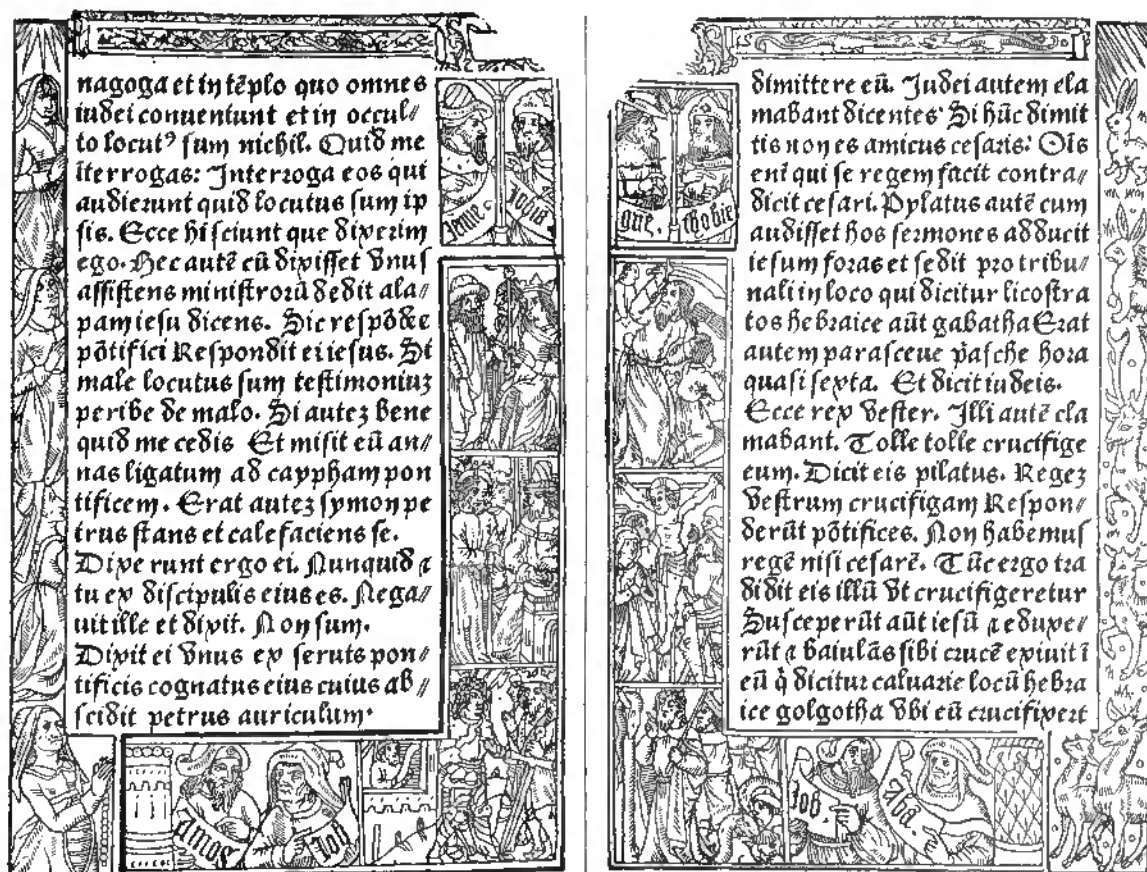 nagoga et in tēplo quo omnes
iudei conueniunt et in occul⸗
to locutꝰ sum nichil. Quid me
īterrogas: Interroga eos qui
audierunt quid locutus sum ip
sis. Ecce hi sciunt que dixerim
ego. Hec autē cū dixisset vnus
assistens ministrorū dedit ala⸗
pam iesu dicens. Sic respōdes
pōtifici Respondit ei iesus. Si
male locutus sum testimoniuꝫ
peribe de malo. Si auteꝫ bene
quid me cedis Et misit eū an⸗
nas ligatum ad caypham pon
tificem. Erat auteꝫ symon pe
trus stans et calefaciens se.
Dixerunt ergo ei. Nunquid ⁊
tu ex discipulis eius es. Nega⸗
uit ille et dixit. Non sum.
Dixit ei vnus ex seruis pon⸗
tificis cognatus eius cuius ab⸗
scidit petrus auriculum.
Jenne. Jona
amos Joel
dimittere eū. Judei autem cla
mabant dicentes Si hūc dimit
tis non es amicus cesaris: Oīs
enī qui se regem facit contra⸗
dicit cesari. Pylatus autē cum
audisset hos sermones adducit
iesum foras et sedit pro tribu⸗
nali in loco qui dicitur licostra
tos hebraice aūt gabatha Erat
autem parasceue pasche hora
quasi sexta. Et dicit iudeis.
Ecce rex vester. Illi autē cla
mabant. Tolle tolle crucifige
eum. Dicit eis pilatus. Regeꝫ
vestrum crucifigam Respon⸗
derūt pōtifices. Non habemus
regē nisi cesarē. Tūc ergo tra
didit eis illū vt crucifigeretur
Susceperūt aūt iesū ⁊ eduxe⸗
rūt ⁊ baiulās sibi crucē exiuit ī
eū q̇ dicitur caluarie locū hebra
ice golgotha vbi eū crucifixert
gue. thobie
Job. Aba.